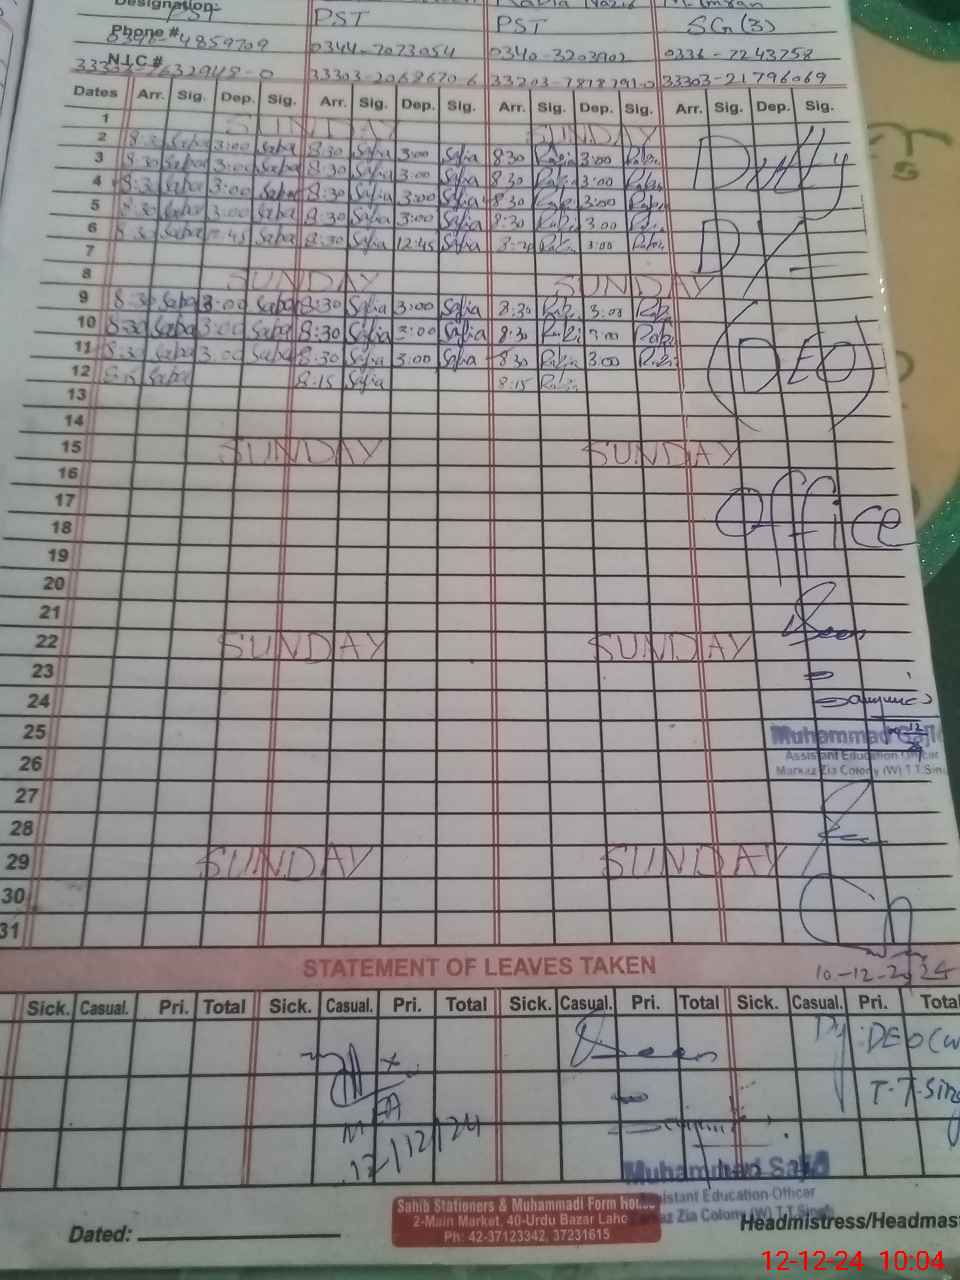 Designation:- PST PST PST SG (3)
Phone # 4859709 0344-7073054 0340-3203902 0336-7243758
N.I.C.# 33303-2068670-6 33203-7878791-0 33303-21796069
Dates Arr. Sig. Dep. Sig. Arr. Sig. Dep. Sig. Arr. Sig. Dep. Sig. Arr. Sig. Dep. Sig.
1 SUNDAY SUNDAY
2 8:30 Saba 3:00 Saba 8:30 Safia 3:00 Safia 8:30 Rabia 3:00 Rabia
3 8:30 Saba 3:00 Saba 8:30 Safia 3:00 Safia 8:30 Rabia 3:00 Rabia Duty
4 8:30 Saba 3:00 Saba 8:30 Safia 3:00 Safia 8:30 Rabia 3:00 Rabia
5 8:30 Saba 3:00 Saba 8:30 Safia 3:00 Safia 8:30 Rabia 3:00 Rabia
6 8:30 Saba 12:45 Saba 8:30 Safia 12:45 Safia 8:30 Rabia 3:00 Rabia
7
8 SUNDAY SUNDAY
9 8:30 Saba 3:00 Saba 8:30 Safia 3:00 Safia 8:30 Rabia 3:00 Rabia
10 8:30 Saba 3:00 Saba 8:30 Safia 3:00 Safia 8:30 Rabia 3:00 Rabia
11 8:30 Saba 3:00 Saba 8:30 Safia 3:00 Safia 8:30 Rabia 3:00 Rabia (DEO)
12 8:15 Saba 8:15 Safia 8:15 Rabia
13
14
15 SUNDAY SUNDAY
16
17
18 Office
19
20
21
22 SUNDAY SUNDAY
23
24
25 Muhammad Sajid
26 Assistant Education Officer
Markaz Zia Colony (W) T.T.Singh
27
28
29 SUNDAY SUNDAY
30
31
STATEMENT OF LEAVES TAKEN 10-12-2024
Sick. Casual. Pri. Total Sick. Casual. Pri. Total Sick. Casual. Pri. Total Sick. Casual. Pri. Total
Dy: DEO (W
T.T.Sing
MEA
12/12/24
Muhammad Sajid
Assistant Education Officer
Markaz Zia Colony (W) T.T.Singh
Sahib Stationers & Muhammadi Form House
2-Main Market, 40-Urdu Bazar Laho
Ph: 42-37123342, 37231615
Dated: Headmistress/Headmas
12-12-24 10:04